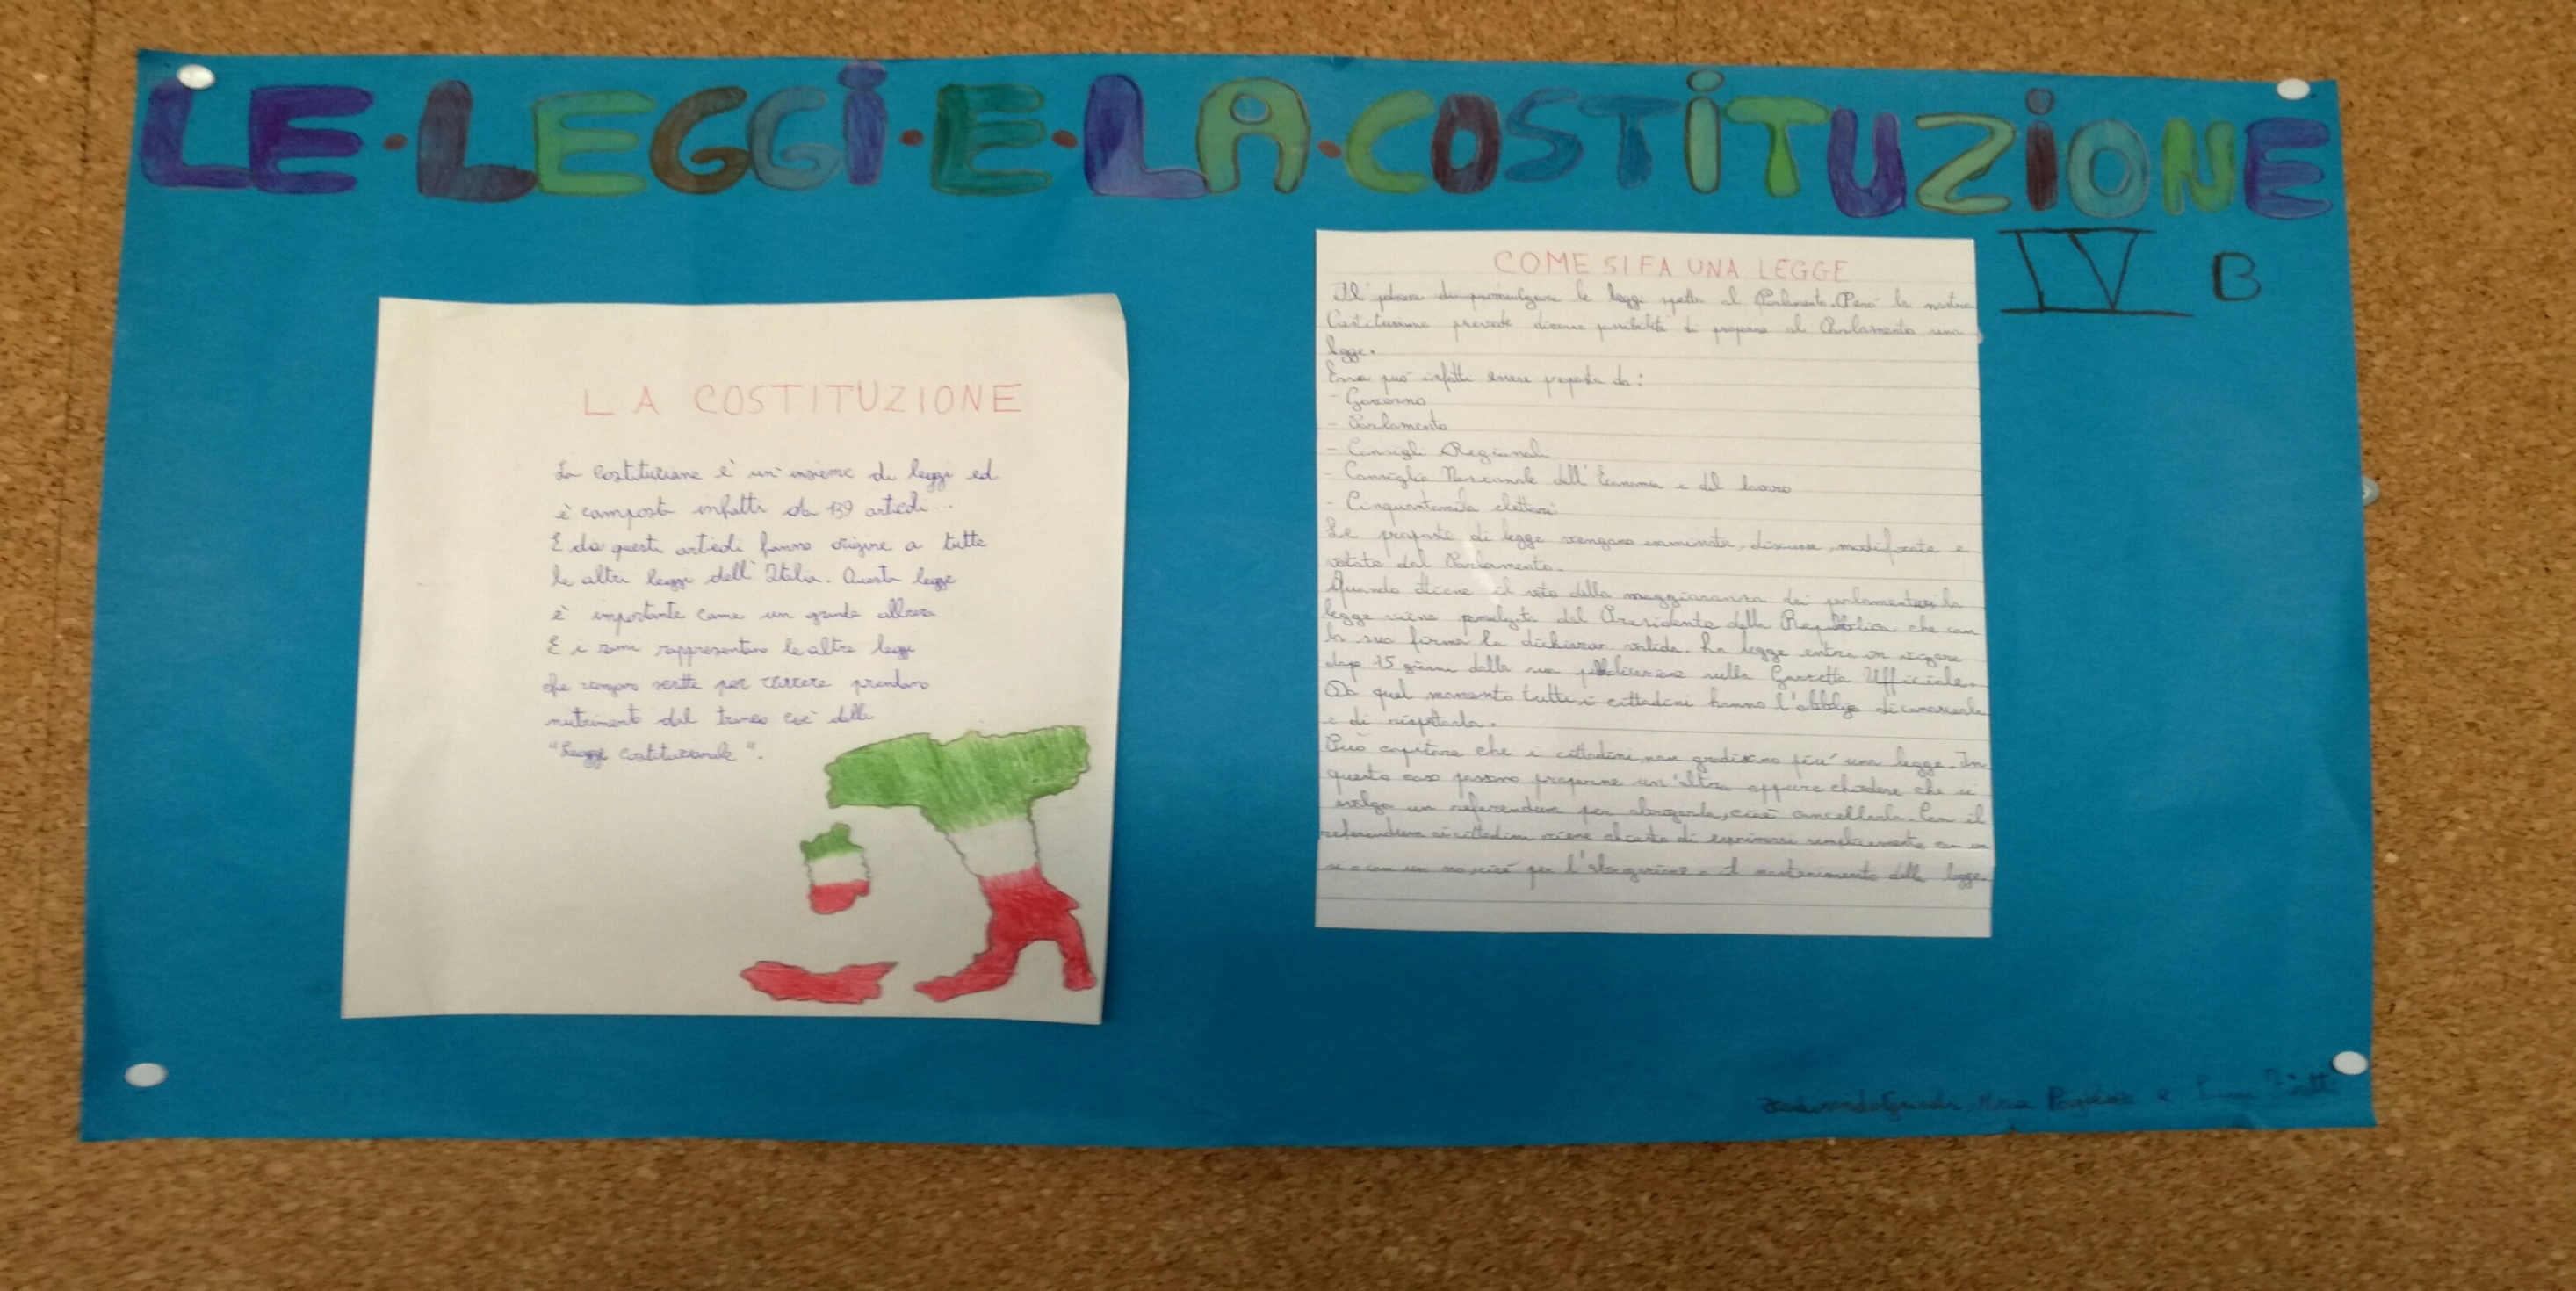 LE·LEGGI·E·LA·COSTITUZIONE
IV B
LA COSTITUZIONE
La costituzione è un'insieme di leggi ed
è composta infatti da 139 articoli...
E da questi articoli fanno origine a tutte
le altri leggi dell'Italia. Questa legge
è importante come un grande albero
E i rami rappresentano le altre leggi
che vengono scritte per crescere prendono
nutrimento dal tronco cioè dalla
"Legge costituzionale".
COME SI FA UNA LEGGE
Il potere di promulgare le leggi spetta al Parlamento. Però la nostra
Costituzione prevede diverse possibilità di proporre al Parlamento una
legge.
Essa può infatti essere proposta da:
- Governo
- Parlamento
- Consigli Regionali
- Consiglio Nazionale dell'Economia e del lavoro
- Cinquantamila elettori
Le proposte di legge vengono esaminate, discusse, modificate e
votate dal Parlamento.
Quando ottiene il voto della maggioranza dei parlamentari la
legge viene promulgata dal Presidente della Repubblica che con
la sua firma la dichiara valida. La legge entra in vigore
dopo 15 giorni dalla sua pubblicazione sulla Gazzetta Ufficiale.
Da quel momento tutti i cittadini hanno l'obbligo di conoscerla
e di rispettarla.
Può capitare che i cittadini non gradiscano più una legge. In
questo caso possono proporne un'altra oppure chiedere che si
svolga un referendum per abrogarla, cioè cancellarla. Con il
referendum ai cittadini viene chiesto di esprimersi semplicemente con un
si o con un no, cioè per l'abrogazione o il mantenimento della legge.